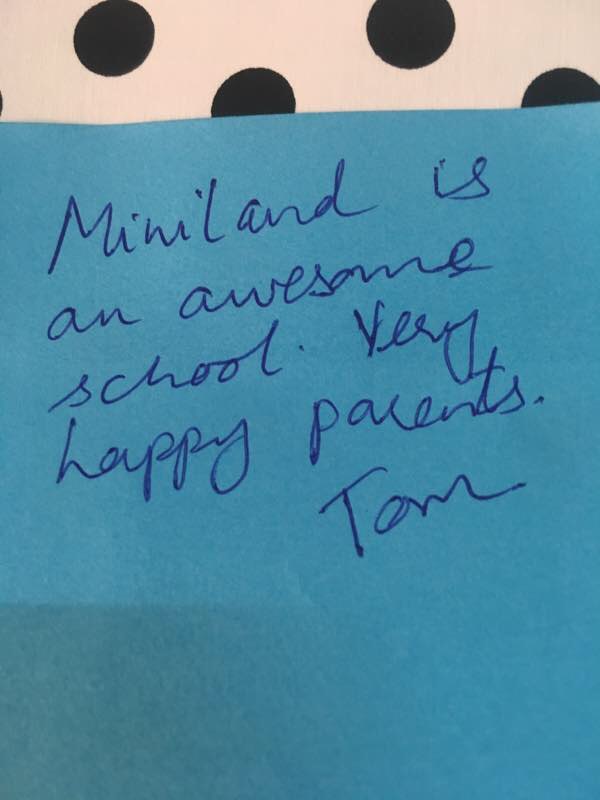 Miniland is
an awesome
school. Very
happy parents.
Tom